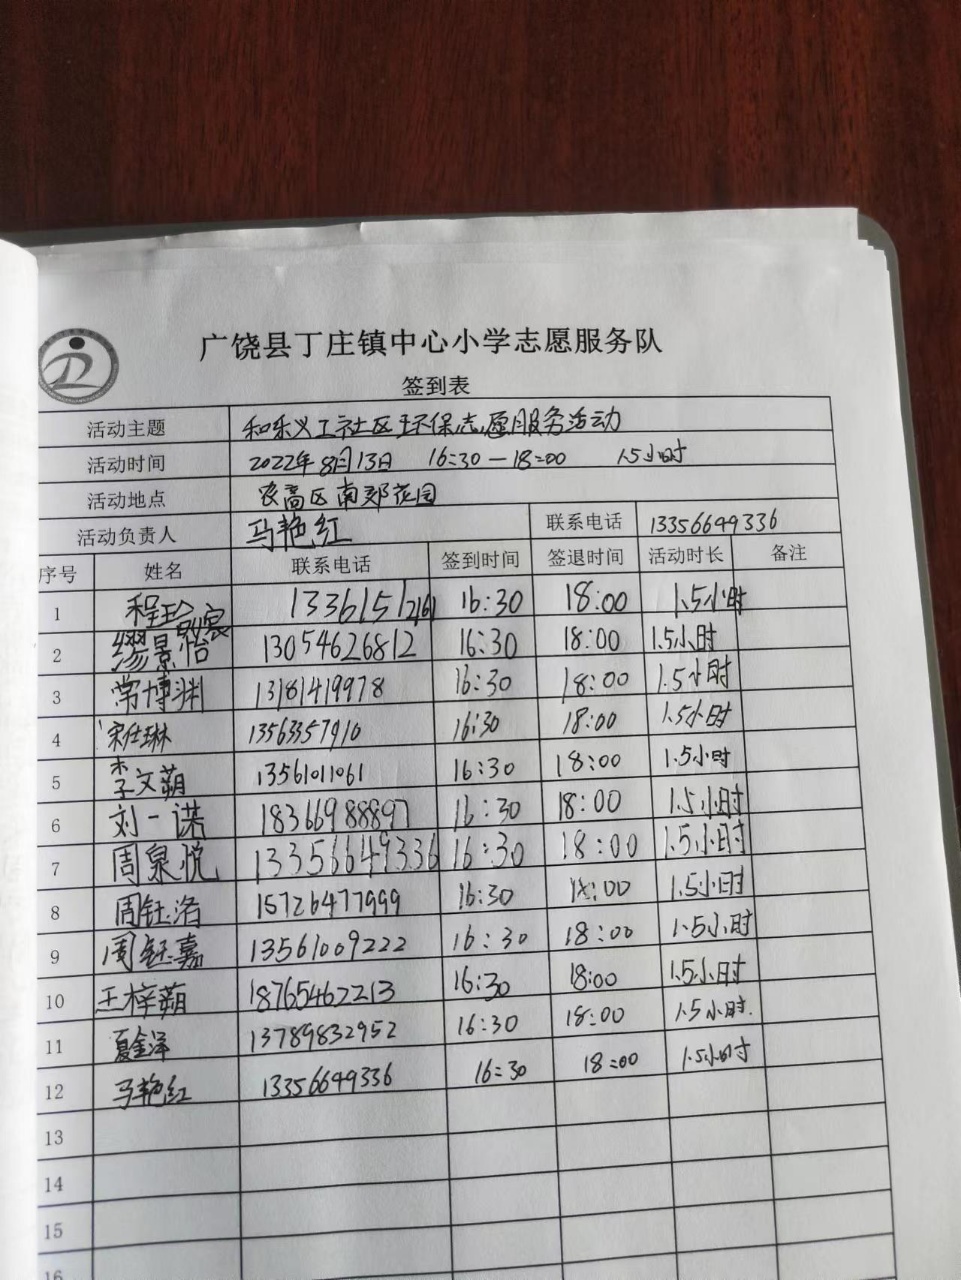 广饶县丁庄镇中心小学志愿服务队
签到表
活动主题 和乐义工社区环保志愿服务活动
活动时间 2022年8月13日 16:30—18:00 1.5小时
活动地点 农高区南郊花园
活动负责人 马艳红 联系电话 13356649336
序号 姓名 联系电话 签到时间 签退时间 活动时长 备注
1 程珍 16:30 18:00 1.5小时
2 缪景怡 13054626812 16:30 18:00 1.5小时
3 常博渊 13181419978 16:30 18:00 1.5小时
4 宋仕琳 13563357910 16:30 18:00 1.5小时
5 李文蒴 13561011061 16:30 18:00 1.5小时
6 刘一诺 18366988897 16:30 18:00 1.5小时
7 周泉悦 13356649336 16:30 18:00 1.5小时
8 周钰洛 15726477999 16:30 18:00 1.5小时
9 周钰嘉 13561009222 16:30 18:00 1.5小时
10 王梓蒴 18765462213 16:30 18:00 1.5小时
11 夏金泽 13789832952 16:30 18:00 1.5小时
12 马艳红 13356649336 16:30 18:00 1.5小时
13
14
15
16